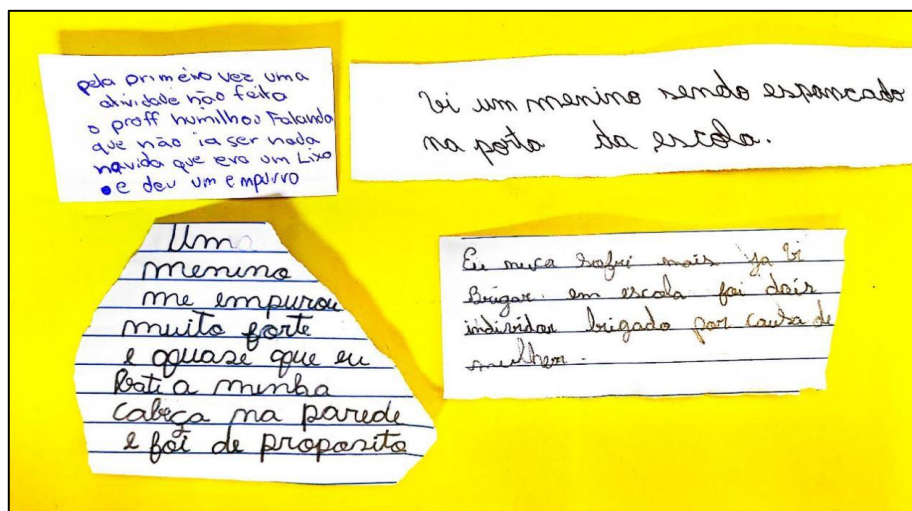 pela primeiro vez uma
atividade não feita
o proff humilhou Falando
que não ia ser nada
navida que era um Lixo
e deu um empurro
Vi um menino sendo espancado
na porta da escola.
Um
menino
me empurou
muito forte
e quase que eu
bati a minha
cabeça na parede
e foi de proposito
Eu nuca sofri mais ja vi
Brigar em escola foi dois
individar brigado por causa de
mulher.